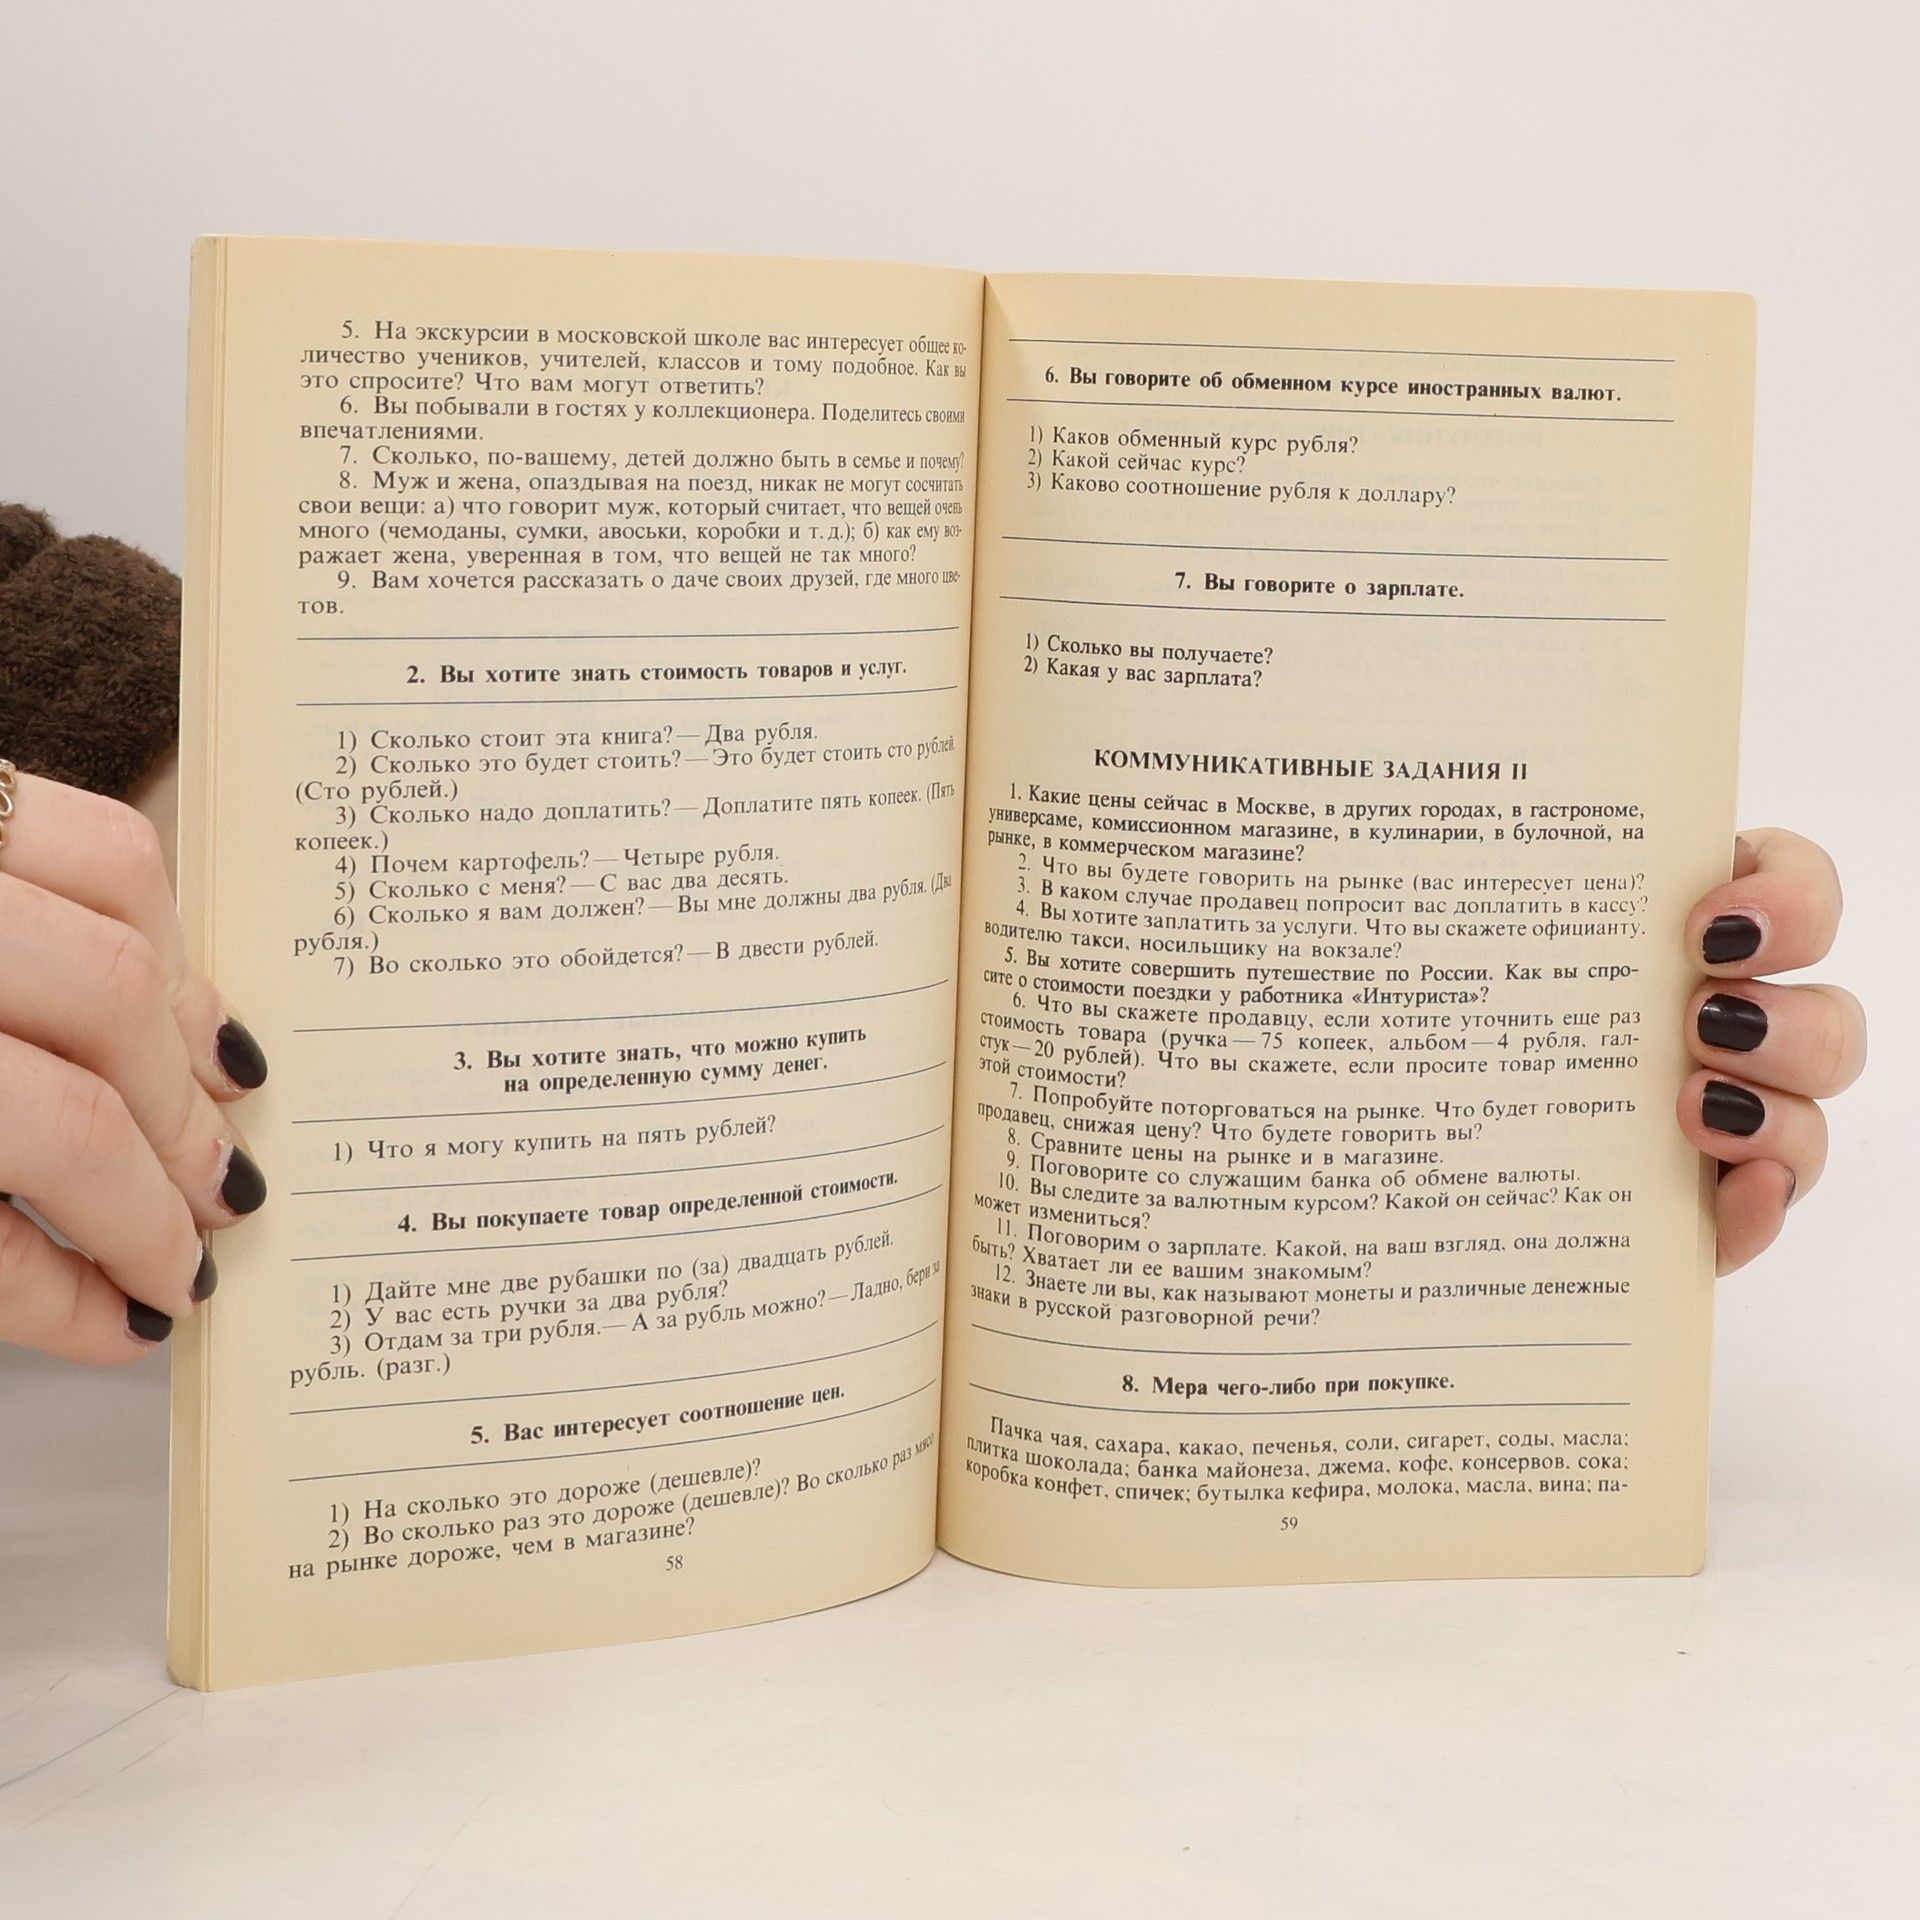 5. На экскурсии в московской школе вас интересует общее ко-
личество учеников, учителей, классов и тому подобное. Как вы
это спросите? Что вам могут ответить?
6. Вы побывали в гостях у коллекционера. Поделитесь своими
впечатлениями.
7. Сколько, по-вашему, детей должно быть в семье и почему?
8. Муж и жена, опаздывая на поезд, никак не могут сосчитать
свои вещи: а) что говорит муж, который считает, что вещей очень
много (чемоданы, сумки, авоськи, коробки и т. д.); б) как ему воз-
ражает жена, уверенная в том, что вещей не так много?
9. Вам хочется рассказать о даче своих друзей, где много цве-
тов.
2. Вы хотите знать стоимость товаров и услуг.
1) Сколько стоит эта книга? — Два рубля.
2) Сколько это будет стоить? — Это будет стоить сто рублей.
(Сто рублей.)
3) Сколько надо доплатить? — Доплатите пять копеек. (Пять
копеек.)
4) Почем картофель? — Четыре рубля.
5) Сколько с меня? — С вас два десять.
6) Сколько я вам должен? — Вы мне должны два рубля. (Два
рубля.)
7) Во сколько это обойдется? — В двести рублей.
3. Вы хотите знать, что можно купить
на определенную сумму денег.
1) Что я могу купить на пять рублей?
4. Вы покупаете товар определенной стоимости.
1) Дайте мне две рубашки по (за) двадцать рублей.
2) У вас есть ручки за два рубля?
3) Отдам за три рубля. — А за рубль можно? — Ладно, бери за
рубль. (разг.)
5. Вас интересует соотношение цен.
1) На сколько это дороже (дешевле)?
2) Во сколько раз это дороже (дешевле)? Во сколько раз мясо
на рынке дороже, чем в магазине?
58
6. Вы говорите об обменном курсе иностранных валют.
1) Каков обменный курс рубля?
2) Какой сейчас курс?
3) Каково соотношение рубля к доллару?
7. Вы говорите о зарплате.
1) Сколько вы получаете?
2) Какая у вас зарплата?
КОММУНИКАТИВНЫЕ ЗАДАНИЯ II
1. Какие цены сейчас в Москве, в других городах, в гастрономе,
универсаме, комиссионном магазине, в кулинарии, в булочной, на
рынке, в коммерческом магазине?
2. Что вы будете говорить на рынке (вас интересует цена)?
3. В каком случае продавец попросит вас доплатить в кассу?
4. Вы хотите заплатить за услуги. Что вы скажете официанту.
водителю такси, носильщику на вокзале?
5. Вы хотите совершить путешествие по России. Как вы спро-
сите о стоимости поездки у работника «Интуриста»?
6. Что вы скажете продавцу, если хотите уточнить еще раз
стоимость товара (ручка — 75 копеек, альбом — 4 рубля, гал-
стук — 20 рублей). Что вы скажете, если просите товар именно
этой стоимости?
7. Попробуйте поторговаться на рынке. Что будет говорить
продавец, снижая цену? Что будете говорить вы?
8. Сравните цены на рынке и в магазине.
9. Поговорите со служащим банка об обмене валюты.
10. Вы следите за валютным курсом? Какой он сейчас? Как он
может измениться?
11. Поговорим о зарплате. Какой, на ваш взгляд, она должна
быть? Хватает ли ее вашим знакомым?
12. Знаете ли вы, как называют монеты и различные денежные
знаки в русской разговорной речи?
8. Мера чего-либо при покупке.
Пачка чая, сахара, какао, печенья, соли, сигарет, соды, масла;
плитка шоколада; банка майонеза, джема, кофе, консервов, сока;
коробка конфет, спичек; бутылка кефира, молока, масла, вина; па-
59